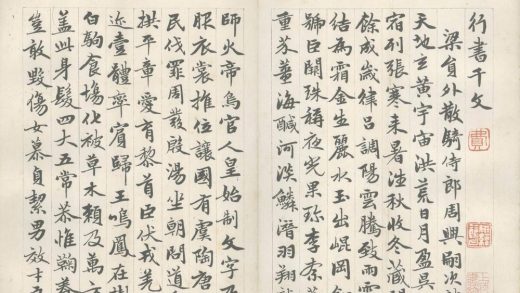 行書千文
梁員外散騎侍郎周興嗣次
天地玄黃宇宙洪荒日月盈昃
宿列張寒来暑往秋收冬藏閏
餘成歲律呂調陽雲騰致雨露
結為霜金生麗水玉出崐岡劍
號巨闕珠稱夜光果珎李柰
重芥薑海鹹河淡鱗潛羽翔
師火帝鳥官人皇始制文字乃
服衣裳推位讓國有虞陶唐
民伐罪周發殷湯坐朝問道
拱平章愛育黎首臣伏戎羌
迩壹體率賓歸王鳴鳳在樹
白駒食場化被草木賴及萬方
盖此身髮四大五常恭惟鞠養
豈敢毀傷女慕貞絜男效才